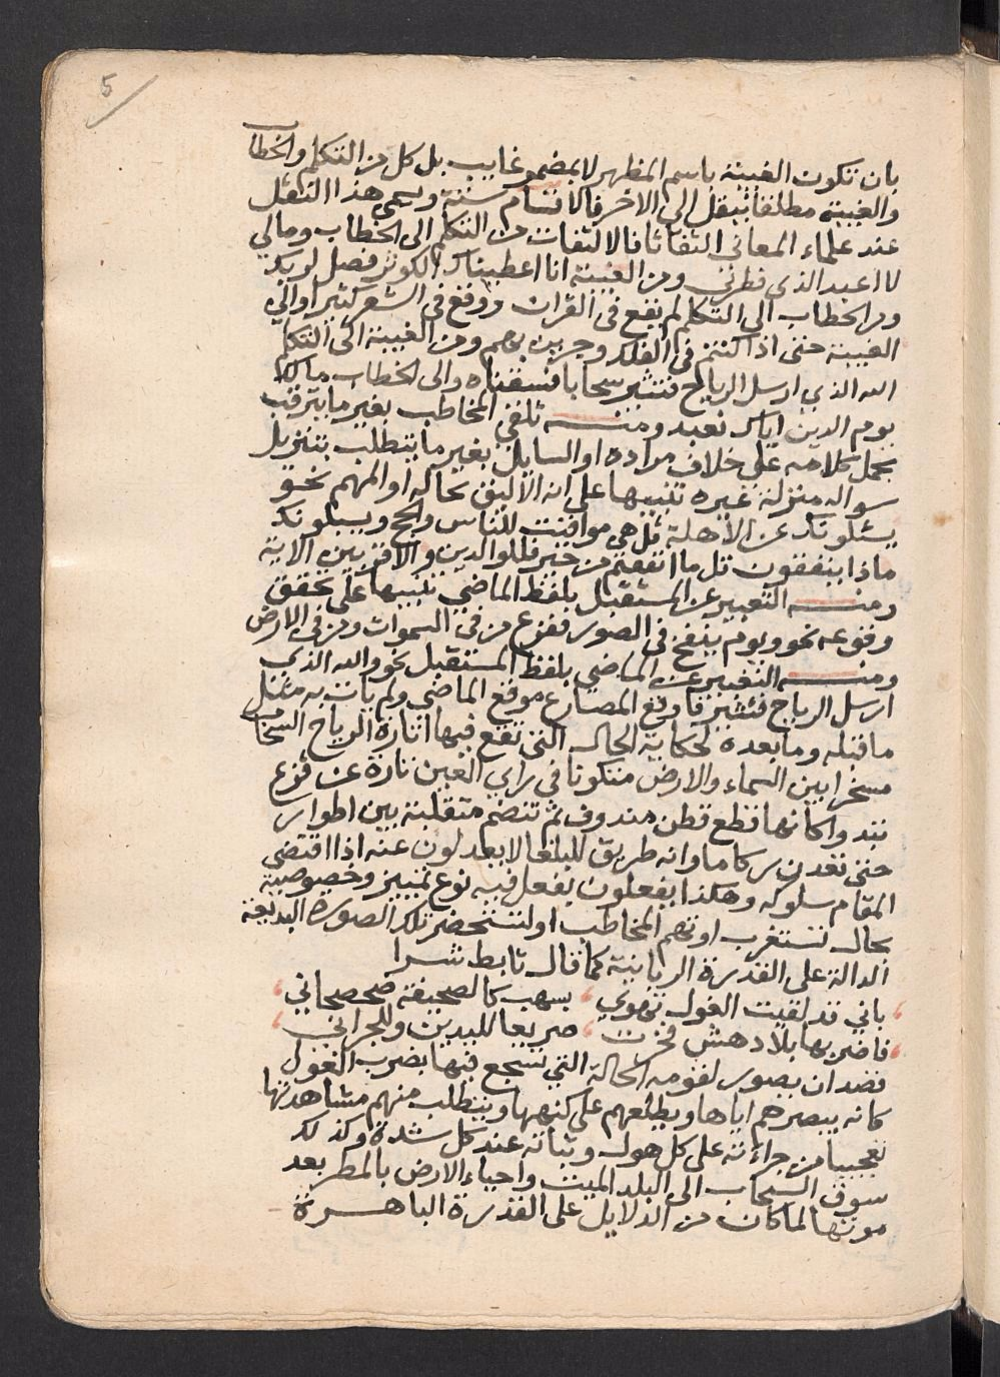 5
بان تكون الغيبة باسم المظهر لا بمضمر غايب بل كل من التكلم والخطاب
والغيبة مطلقا ينقل الى الاخر فالاقسام ستة ويسمى هذا النقل
عند علماء المعاني التفاتا فالالتفات من التكلم الى الخطاب ومالي
لا اعبد الذي فطرني ومن الغيبة انا اعطيناك الكوثر فصل لربك
ومن الخطاب الى التكلم لم يقع في القران ووقع في الشعر كثيرا والى
الغيبة حتى اذا كنتم في الفلك وجرين بهم ومن الغيبة الى التكلم
الله الذي ارسل الرياح فتثير سحابا فسقناه والى الخطاب مالك
يوم الدين اياك نعبد ومنه تلقي المخاطب بغير ما يترقب
بحمل كلامه على خلاف مراده او السايل بغير ما يتطلب بتنزيل
سواله منزلة غيره تنبيها على انه الاليق بحاله او المهم نحو
يسئلونك عن الاهلة قل هي مواقيت للناس والحج ويسئلونك
ماذا ينفقون قل ما انفقتم من خير فللوالدين والاقربين الاية
ومنه التعبير عن المستقبل بلفظ الماضي تنبيها على تحقق
وقوعه نحو ويوم ينفخ في الصور ففزع من في السموات ومن في الارض
ومنه التعبير عن الماضي بلفظ المستقبل نحو والله الذي
ارسل الرياح فتثير فاوقع المضارع موقع الماضي ولم يات به مثل
ما قبله وما بعده لحكاية الحال التي تقع فيها اثارة الرياح السحاب
مسخرا بين السماء والارض متكونا في راي العين تارة عن قزع
تبدوا كانها قطع قطن مندوف ثم تنضم متقلبة بين اطوار
حتى تعدن ركاما وانه طريق للبلغا لا يعدلون عنه اذا اقتضى
المقام سلوكه وهكذا يفعلون بفعل فيه نوع تمييز وخصوصية
بحال تستغرب او تهم المخاطب او لتستحضر تلك الصورة البديعة
الدالة على القدرة الربانية كما قال تابط شرا
باني قد لقيت الغول تهوي ، بسهب كالصحيفة صحصحاني
فاضربها بلا دهش فخرت ، صريعا لليدين وللجراني
قصد ان يصور لقومه الحالة التي تشجع فيها بضرب الغول
كانه يبصرهم اياها ويطلعهم على كنهها ويتطلب منهم مشاهدتها
تعجيبا من جراءته على كل هول وثباته عند كل شدة وكذلك
سوق السحاب الى البلد الميت واحياء الارض بالمطر بعد
موتها لما كان من الدلايل على القدرة الباهرة